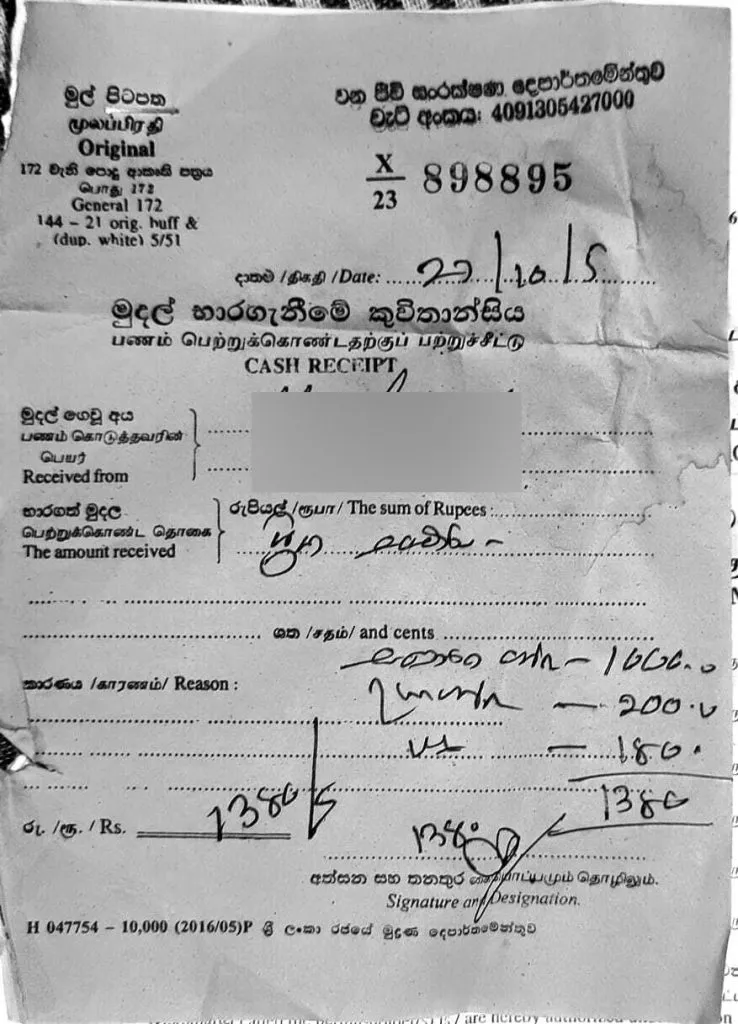 මුල් පිටපත
මூலப்பிரதி
Original
172 වැනි පොදු ආකෘති පත්‍රය
பொது 172
General 172
144 – 21 orig. buff &
(dup. white) 5/51
වන ජීවී සංරක්ෂණ දෙපාර්තමේන්තුව
වැට් අංකය: 4091305427000
X/23 898895
දාතම /திகதி /Date: 22/10/5
මුදල් භාරගැනීමේ කුවිතාන්සිය
பணம் பெற்றுக்கொண்டதற்குப் பற்றுச்சீட்டு
CASH RECEIPT
මුදල් ගෙවූ අය
பணம் கொடுத்தவரின்
பெயர்
Received from
භාරගත් මුදල
பெற்றுக்கொண்ட தொகை
The amount received
රුපියල් /ரூபா / The sum of Rupees :
ශත /சதம்/ and cents
1000.0
කාරණය /காரணம்/ Reason :
— 200.0
— 180.
1380
රු. /ரூ. / Rs. 1380
1380
අත්සන සහ තනතුර
Signature and Designation.
H 047754 – 10,000 (2016/05)P ශ්‍රී ලංකා රජයේ මුද්‍රණ දෙපාර්තමේන්තුව